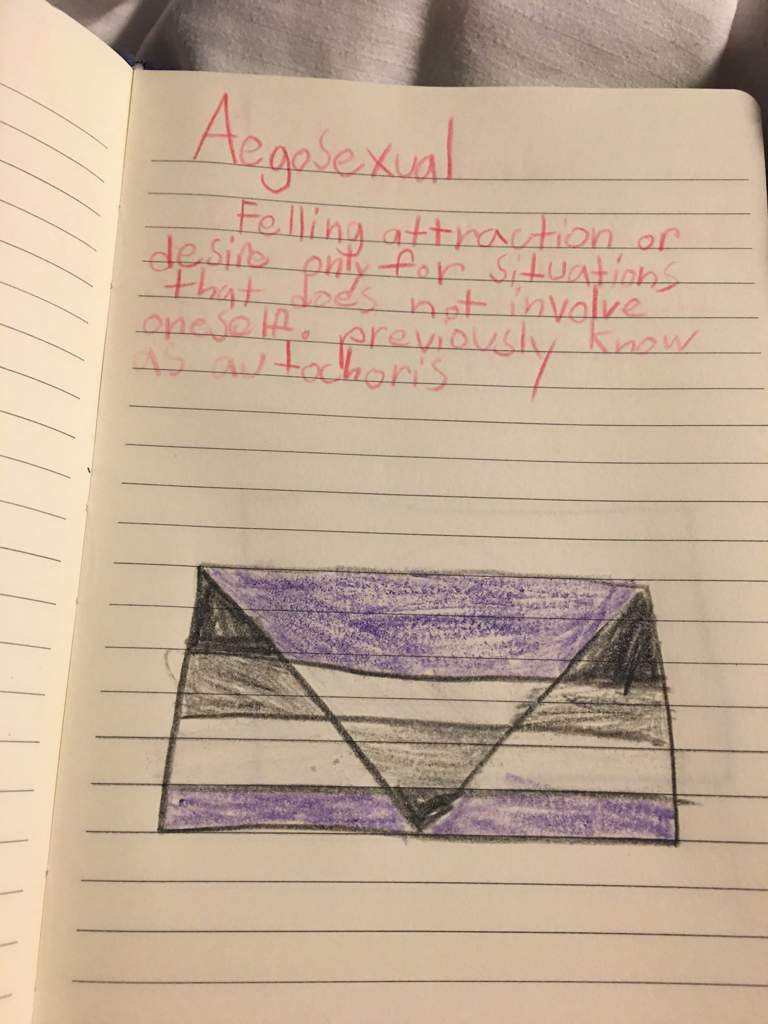 Aegosexual
Felling attraction or
desire only for situations
that does not involve
oneself. previously know
as autochoris